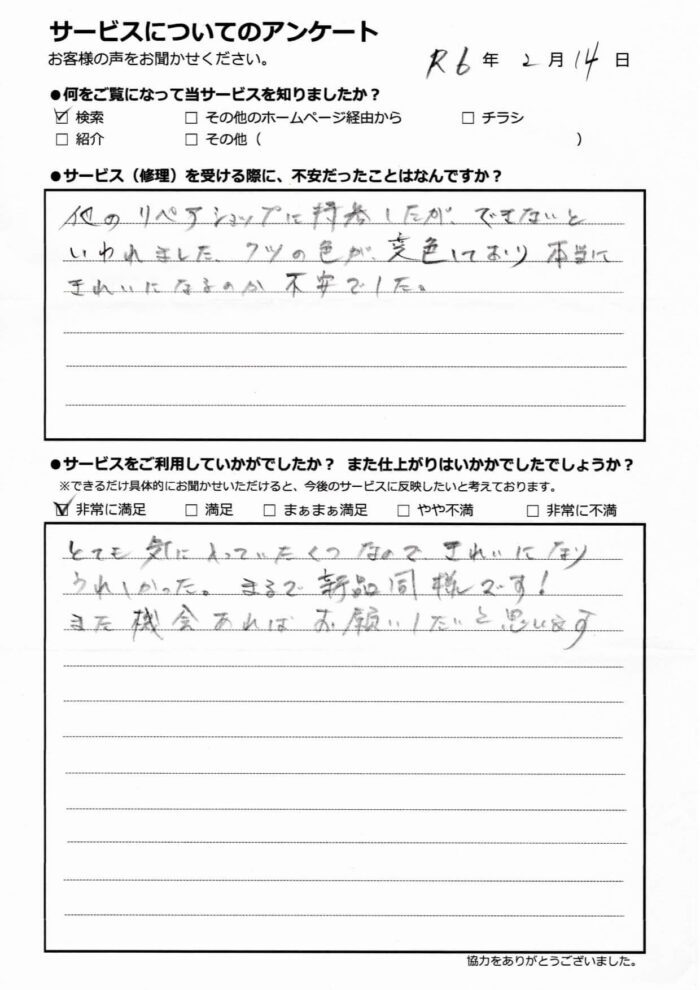 サービスについてのアンケート
お客様の声をお聞かせください。
R6年 2月14日
●何をご覧になって当サービスを知りましたか？
☑ 検索 □ その他のホームページ経由から □ チラシ
□ 紹介 □ その他（ ）
●サービス（修理）を受ける際に、不安だったことはなんですか？
他のリペアショップに持参したが、できないと
いわれました。クツの色が、変色しており 本当に
きれいになるのか 不安でした。
●サービスをご利用していかがでしたか？ また仕上がりはいかかでしたでしょうか？
※できるだけ具体的にお聞かせいただけると、今後のサービスに反映したいと考えております。
☑ 非常に満足 □ 満足 □ まぁまぁ満足 □ やや不満 □ 非常に不満
とても 気に入っていたくつなので、きれいになり
うれしかった。まるで 新品同様です！
また 機会あれば お願いしたいと思います
協力をありがとうございました。